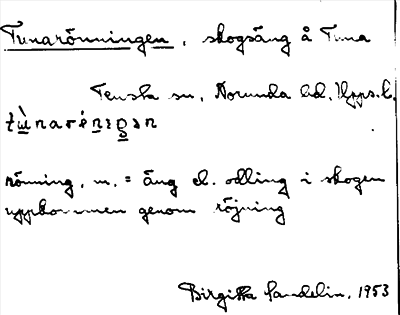 Tunarönningen, skogsäng å Tuna
Tensta sn, Norunda hd, Upps. l.
rönning, m. = äng el. odling i skogen
uppkommen genom röjning
Birgitta Sandelin, 1953